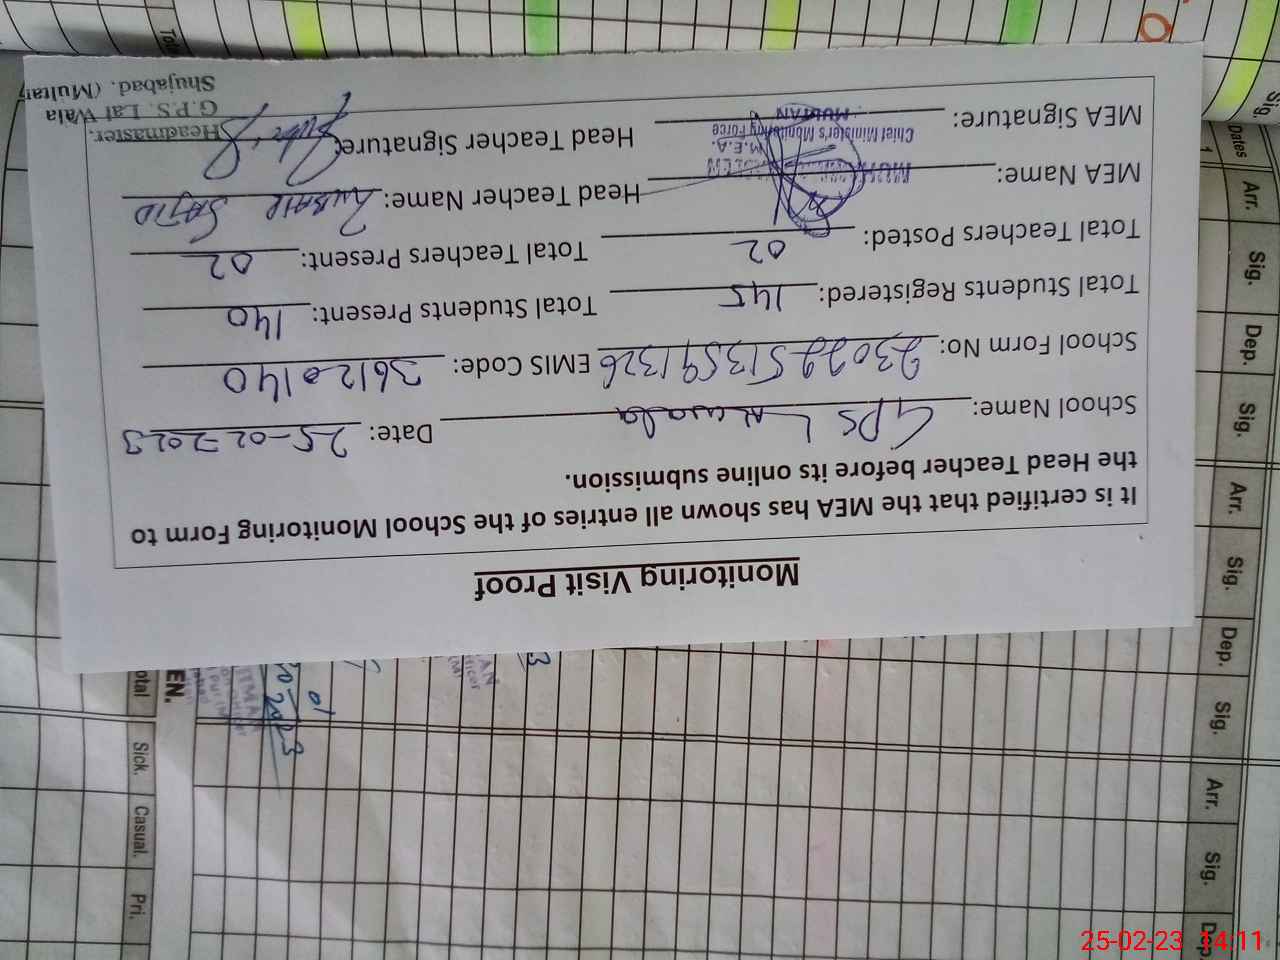 Monitoring Visit Proof
It is certified that the MEA has shown all entries of the School Monitoring Form to
the Head Teacher before its online submission.
School Name: GPS Lalwala Date: 25-02-2023
School Form No: EMIS Code: 36120140
Total Students Registered: 145 Total Students Present: 140
Total Teachers Posted: 02 Total Teachers Present: 02
MEA Name: Head Teacher Name: ZUBAIR SAJID
M.E.A.
Chief Minister's Monitoring Force
MULTAN
MEA Signature: Head Teacher Signature:
Headmaster.
G.P.S. Lal Wala
Shujabad. (Multan
Dates Arr. Sig. Dep. Sig. Arr. Sig. Dep. Sig. Arr. Sig. Dep.
1
Sig.
EN.
otal Sick. Casual. Pri.
25-02-23 14:11